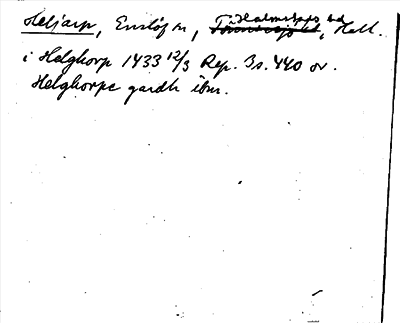 Heljarp, Enslöf sn, Halmstads hd, Hall.
i Helghorp 1433 12/3 Rep. 3 s. 440 or.
Helghorpe gardh ibm.